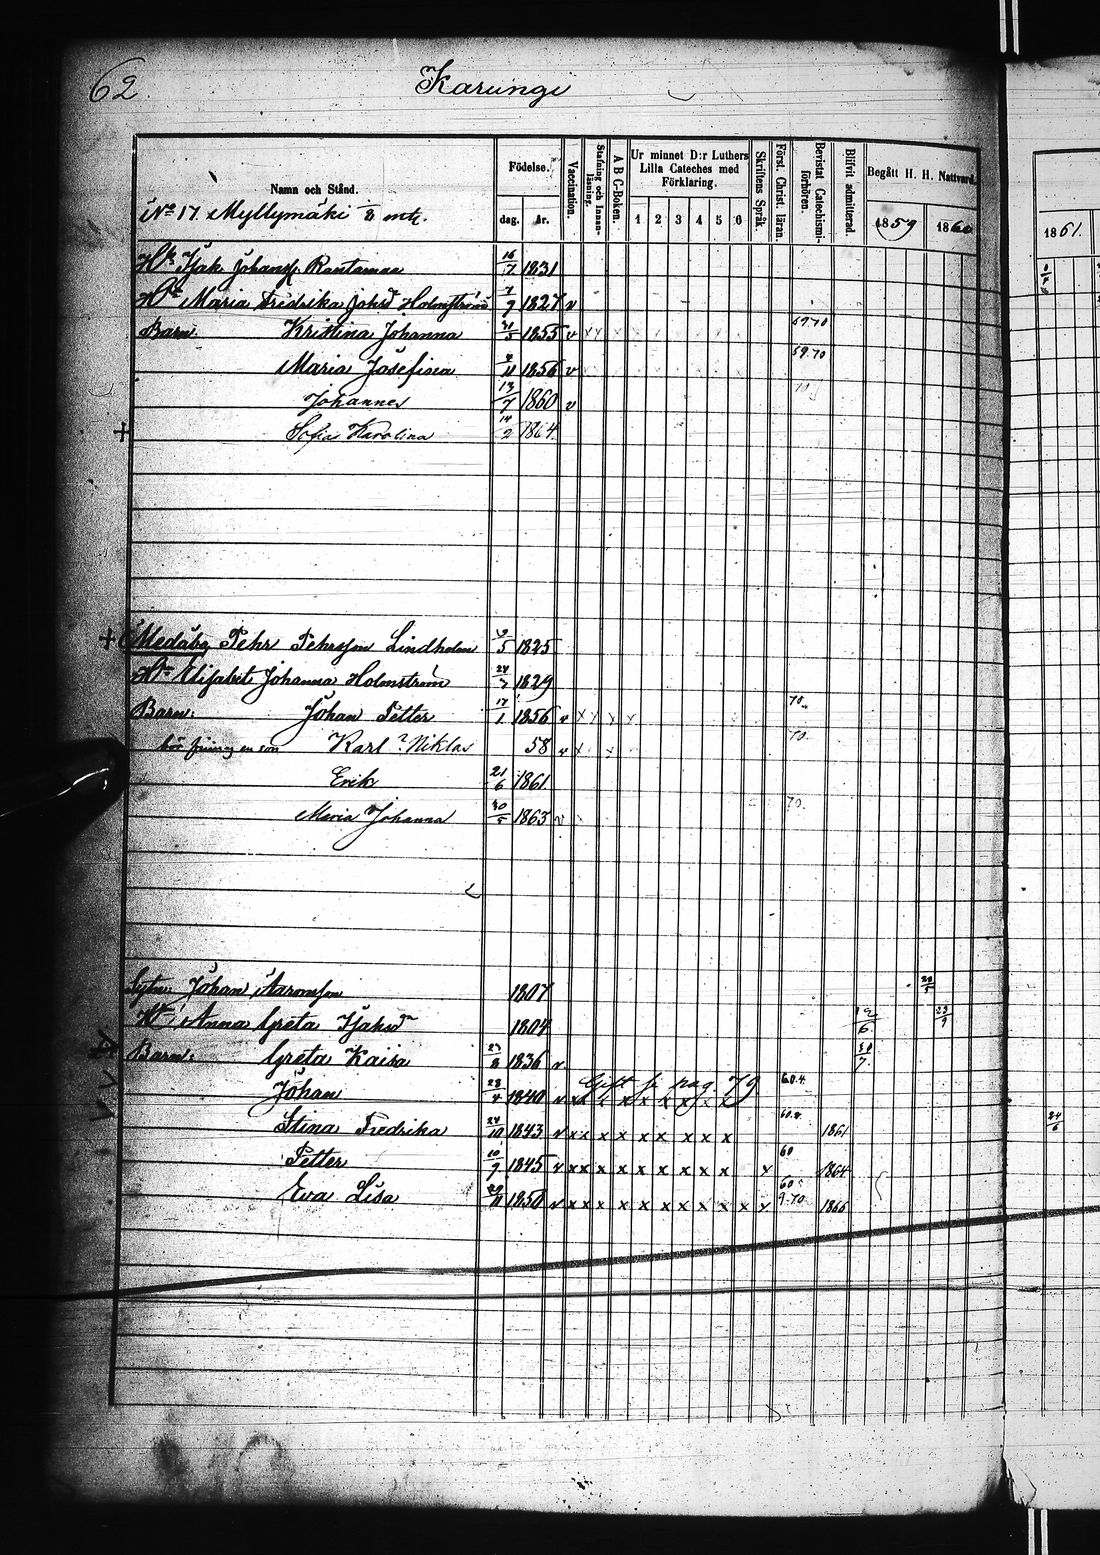 62
Karungi
Namn och Stånd.
Födelse.
dag.
år.
Vaccination.
Stafning och Innanläsning.
A B C-Boken.
Ur minnet D:r Luthers Lilla Cateches med Förklaring.
1 2 3 4 5 6
Skriftens Språk.
Först. Christ. läran.
Bevistat Catechismiförhören.
Blifvit admitterad.
Begått H. H. Nattvard.
1859 1860
1861.
No 17 Myllymäki mtl.
Isak Johanss Rantamaa 16/7 1831
Hu Maria Fredrika Johsd Holmström 7/9 1827 v
Barn Kristina Johanna 31/5 1855 v 69.70
Maria Josefina 4/11 1856 v 69.70
Johannes 13/7 1860 v
+ Sofia Karolina 14/2 1864
+ Medåbg Pehr Pehrsson Lindholm 9/5 1825
Hu Elisabet Johanna Holmström 24/7 1829
Barn: Johan Petter 17/1 1856 v x x x x 70
en son Karl? Niklas 58 v x 70
Erik 21/6 1861
Maria Johanna 30/5 1863 v 70.
Johan Aaronsson 1807 22/5
Hu Anna Greta Isaksdr 1804 12/6 23/9
Barn: Greta Kaisa 23/8 1836 v 30/7
Johan 28/4 1840 v Gift fr pag. 79 60.4.
Stina Fredrika 24/10 1843 v x x x x x x x x x 1861 24/6
Petter 10/9 1845 v x x x x x x x x x x 60 1864
Eva Lisa 29/11 1850 v x x x x x x x x x x v 60 9.70 1866